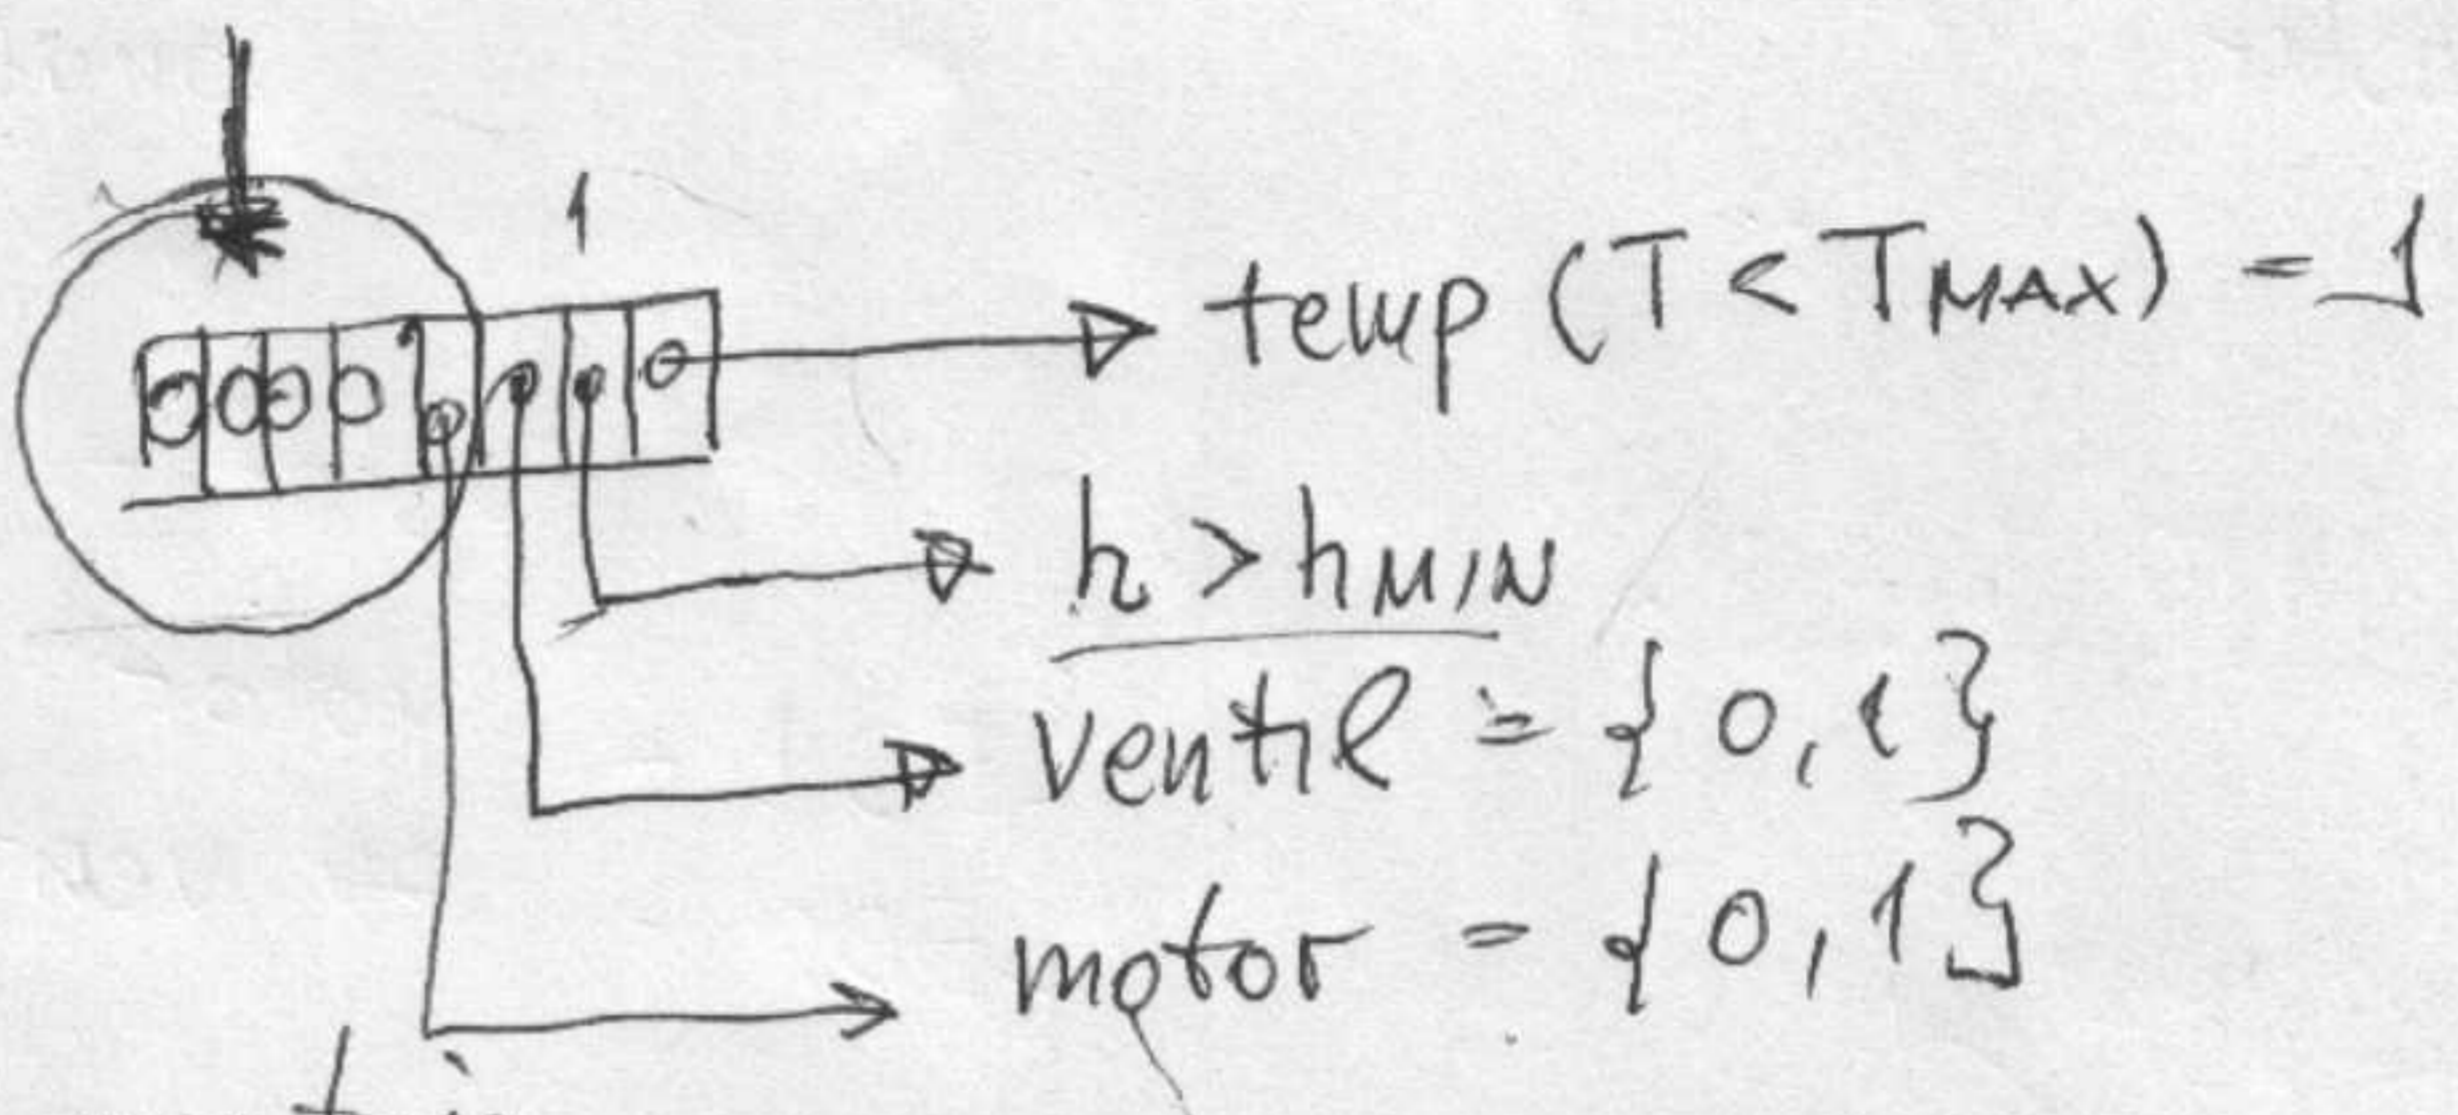 1
0 0 0 0
temp (T < TMAX) = 1
h > hMIN
ventil = {0,1}
motor = {0,1}